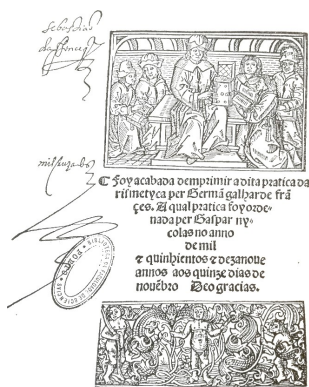 sebastiaõ
¶ Foy acabada demprimir a dita pratica da
rismetyca per Germã galharde frã
çes. A qual pratica foy orde-
nada per Gaspar ny-
colas no anno
de mil
⁊ quinhientos ⁊ dezanoue
annos aos quinze dias de
nouẽbro Deo gracias.